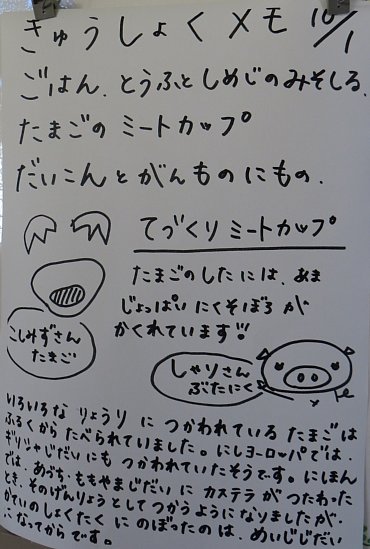 きゅうしょくメモ 10/1
ごはん、とうふとしめじのみそしる、
たまごのミートカップ
だいこんとがんものにもの、
てづくりミートカップ
たまごのしたには、あま
じょっぱいにくそぼろが
かくれています!!
こしみずさん
たまご
しゃりさん
ぶたにく
いろいろなりょうりにつかわれているたまごは
ふるくからたべられていました。にしヨーロッパでは、
ギリシャじだいにもつかわれていたそうです。にほん
では、あづち・ももやまじだいにカステラがつたわった
とき、そのげんりょうとしてつかうようになりましたが、
かていのしょくたくにのぼったのは、めいじじだい
になってからです。